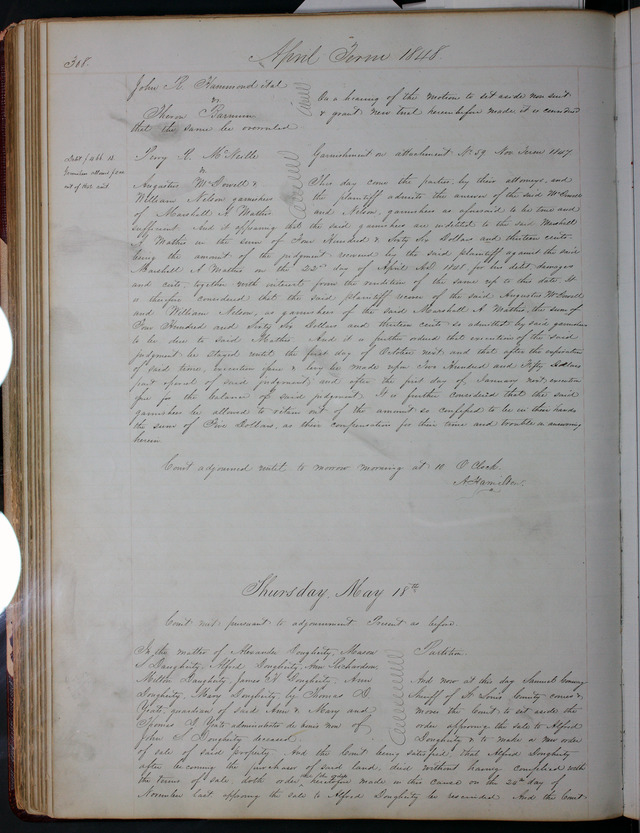 318.
April Term 1848.
John R. Hammond et al
vs
Theron Barnum
On a hearing of the motion to set aside non suit
& grant new trial herein before made it is considered
that the same be overruled
Debt $466.13
Garnishees allowed $5.00
out of this suit
Perry R. McNeille
vs
Garnishment on attachment No 59 Nov Term 1847
Augustus McDowell &
William Nelson garnishees
of Marshall A Mathis
This day come the parties by their attorneys, and
the plaintiff admits the answer of the said McDowell
and Nelson, garnishees as aforesaid to be true and
sufficient And it appearing that the said garnishees are indebted to the said Marshall
A Mathis in the sum of Four Hundred & Sixty Six Dollars and thirteen cents
being the amount of the judgment recovered by the said plaintiff against the said
Marshall A Mathis on the 22nd day of April AD 1848 for his debt damages
and costs, together with interest from the rendition of the same up to this date. It
is therefore considered that the said plaintiff recover of the said Augustus McDowell
and William Nelson, as garnishees of the said Marshall A Mathis, the sum of
Four Hundred and Sixty Six Dollars and thirteen cents so admitted by said garnishees
to be due to said Mathis And it is further ordered that execution of the said
judgment be stayed until the first day of October next and that after the expiration
of said time, execution issue & levy be made upon Two Hundred and Fifty Dollars
part of said judgement; and after the first day of January next execution
issue for the balance of said judgement. It is further considered that the said
garnishees be allowed to retain out of the amount so confessed to be in their hands
the sum of Five Dollars, as their compensation for their time and trouble in answering
herein
Court adjourned until to morrow morning at 10 O'Clock.
A. Hamilton.
Thursday, May 18th
Court met pursuant to adjournment Present as before.
In the matter of Alexander Dougherty, Mason
S Daugherty, Alfred Dougherty, Ann Richardson
Milton Daugherty James Dougherty, Ann
Dougherty, Mary Dougherty by Thomas D
Yeats, guardian of said Ann & Mary and
Thomas D Yeats administrator de bonis non of
John S Dougherty deceased
Partition.
And now at this day Samuel Conway
Sheriff of St Louis County comes &
moves the Court to set aside the
order approving the sale to Alfred
Dougherty & to make a new order
of sale of said property. And the Court being satisfied that Alfred Dougherty
after becoming the purchaser of said land, died without having complied with
the terms of sale, doth order that the order heretofore made in this cause on the 25th day of
November last approving the sale to Alfred Dougherty be rescinded And the Court